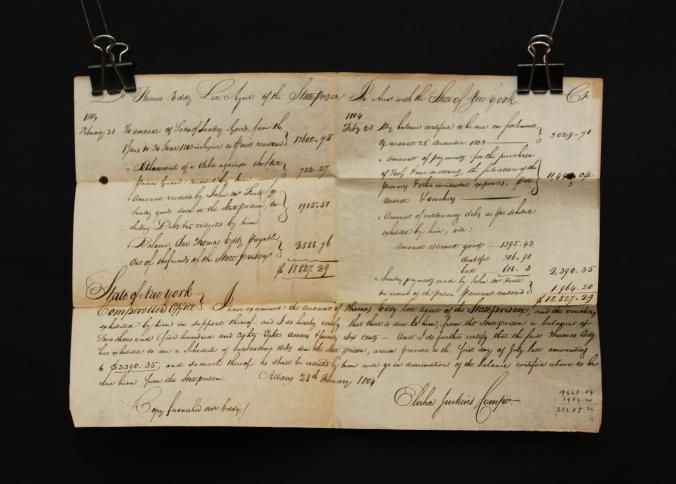 Dr Thomas Eddy Late Agent of the State prison In Acct with the State of New York Cr
1804
February 28 To amount of Sales of Sundry Goods, from the
inclusive as accot rendered 13600.75
Amount of a debt against
prison received by him 722.27
Amount received by John
Sundry goods sold at the State prison,
Debts collected by him 1915.51
Balance due Thomas Eddy payable
Out of the funds of the State prison 2588.76
$ 18827.29
1804
Feby 28 By balance certified to be due on settlement
of account 28 december 1803 3029.70
Amount of payments for the purchase
of the
prisoners & other incidental expenses, per
Account & Vouchers 11,443.04
Amount of outstanding debts as pr schedule
exhibited by him, viz:
Amount deemed good 1395.42
doubtful
bad
2,390.35
Sundry payments made by John
on account of the prison pr account rendered 1,964.20
$ 18.827.29
State of New York
Comptrollers Office } I have examined the Account of Thomas Eddy late Agent of the State prison, and the vouchers
exhibited by him in support thereof and I do hereby certify, that there is due to him, from the State prison a balance of
Two thousand five hundred and Eighty Eight dollars & Seventy Six cents — And I do further certify that the said Thomas Eddy
has exhibited to me a Schedule of Outstanding debts due the State prison, accrued previous to the first day of July last amounting
to $2390.35, and so much thereof as shall be received by him will go in diminution of the balance certified above to be
due him from the State prison. Albany 28th February 1804
Elisha Jenkins Compr
(Copy furnished Mr Eddy)